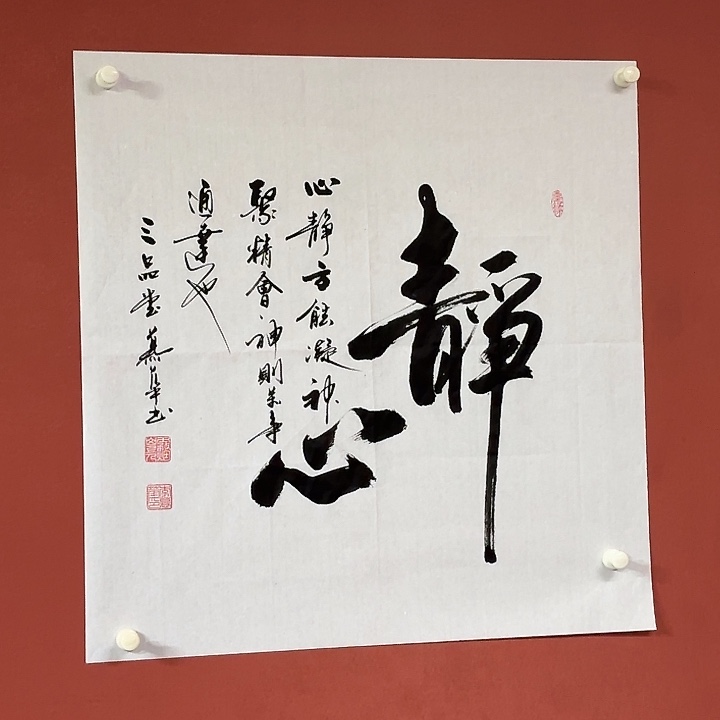 靜心
心靜方能凝神
聚精會神則萬事
通達也
三品堂慕華书